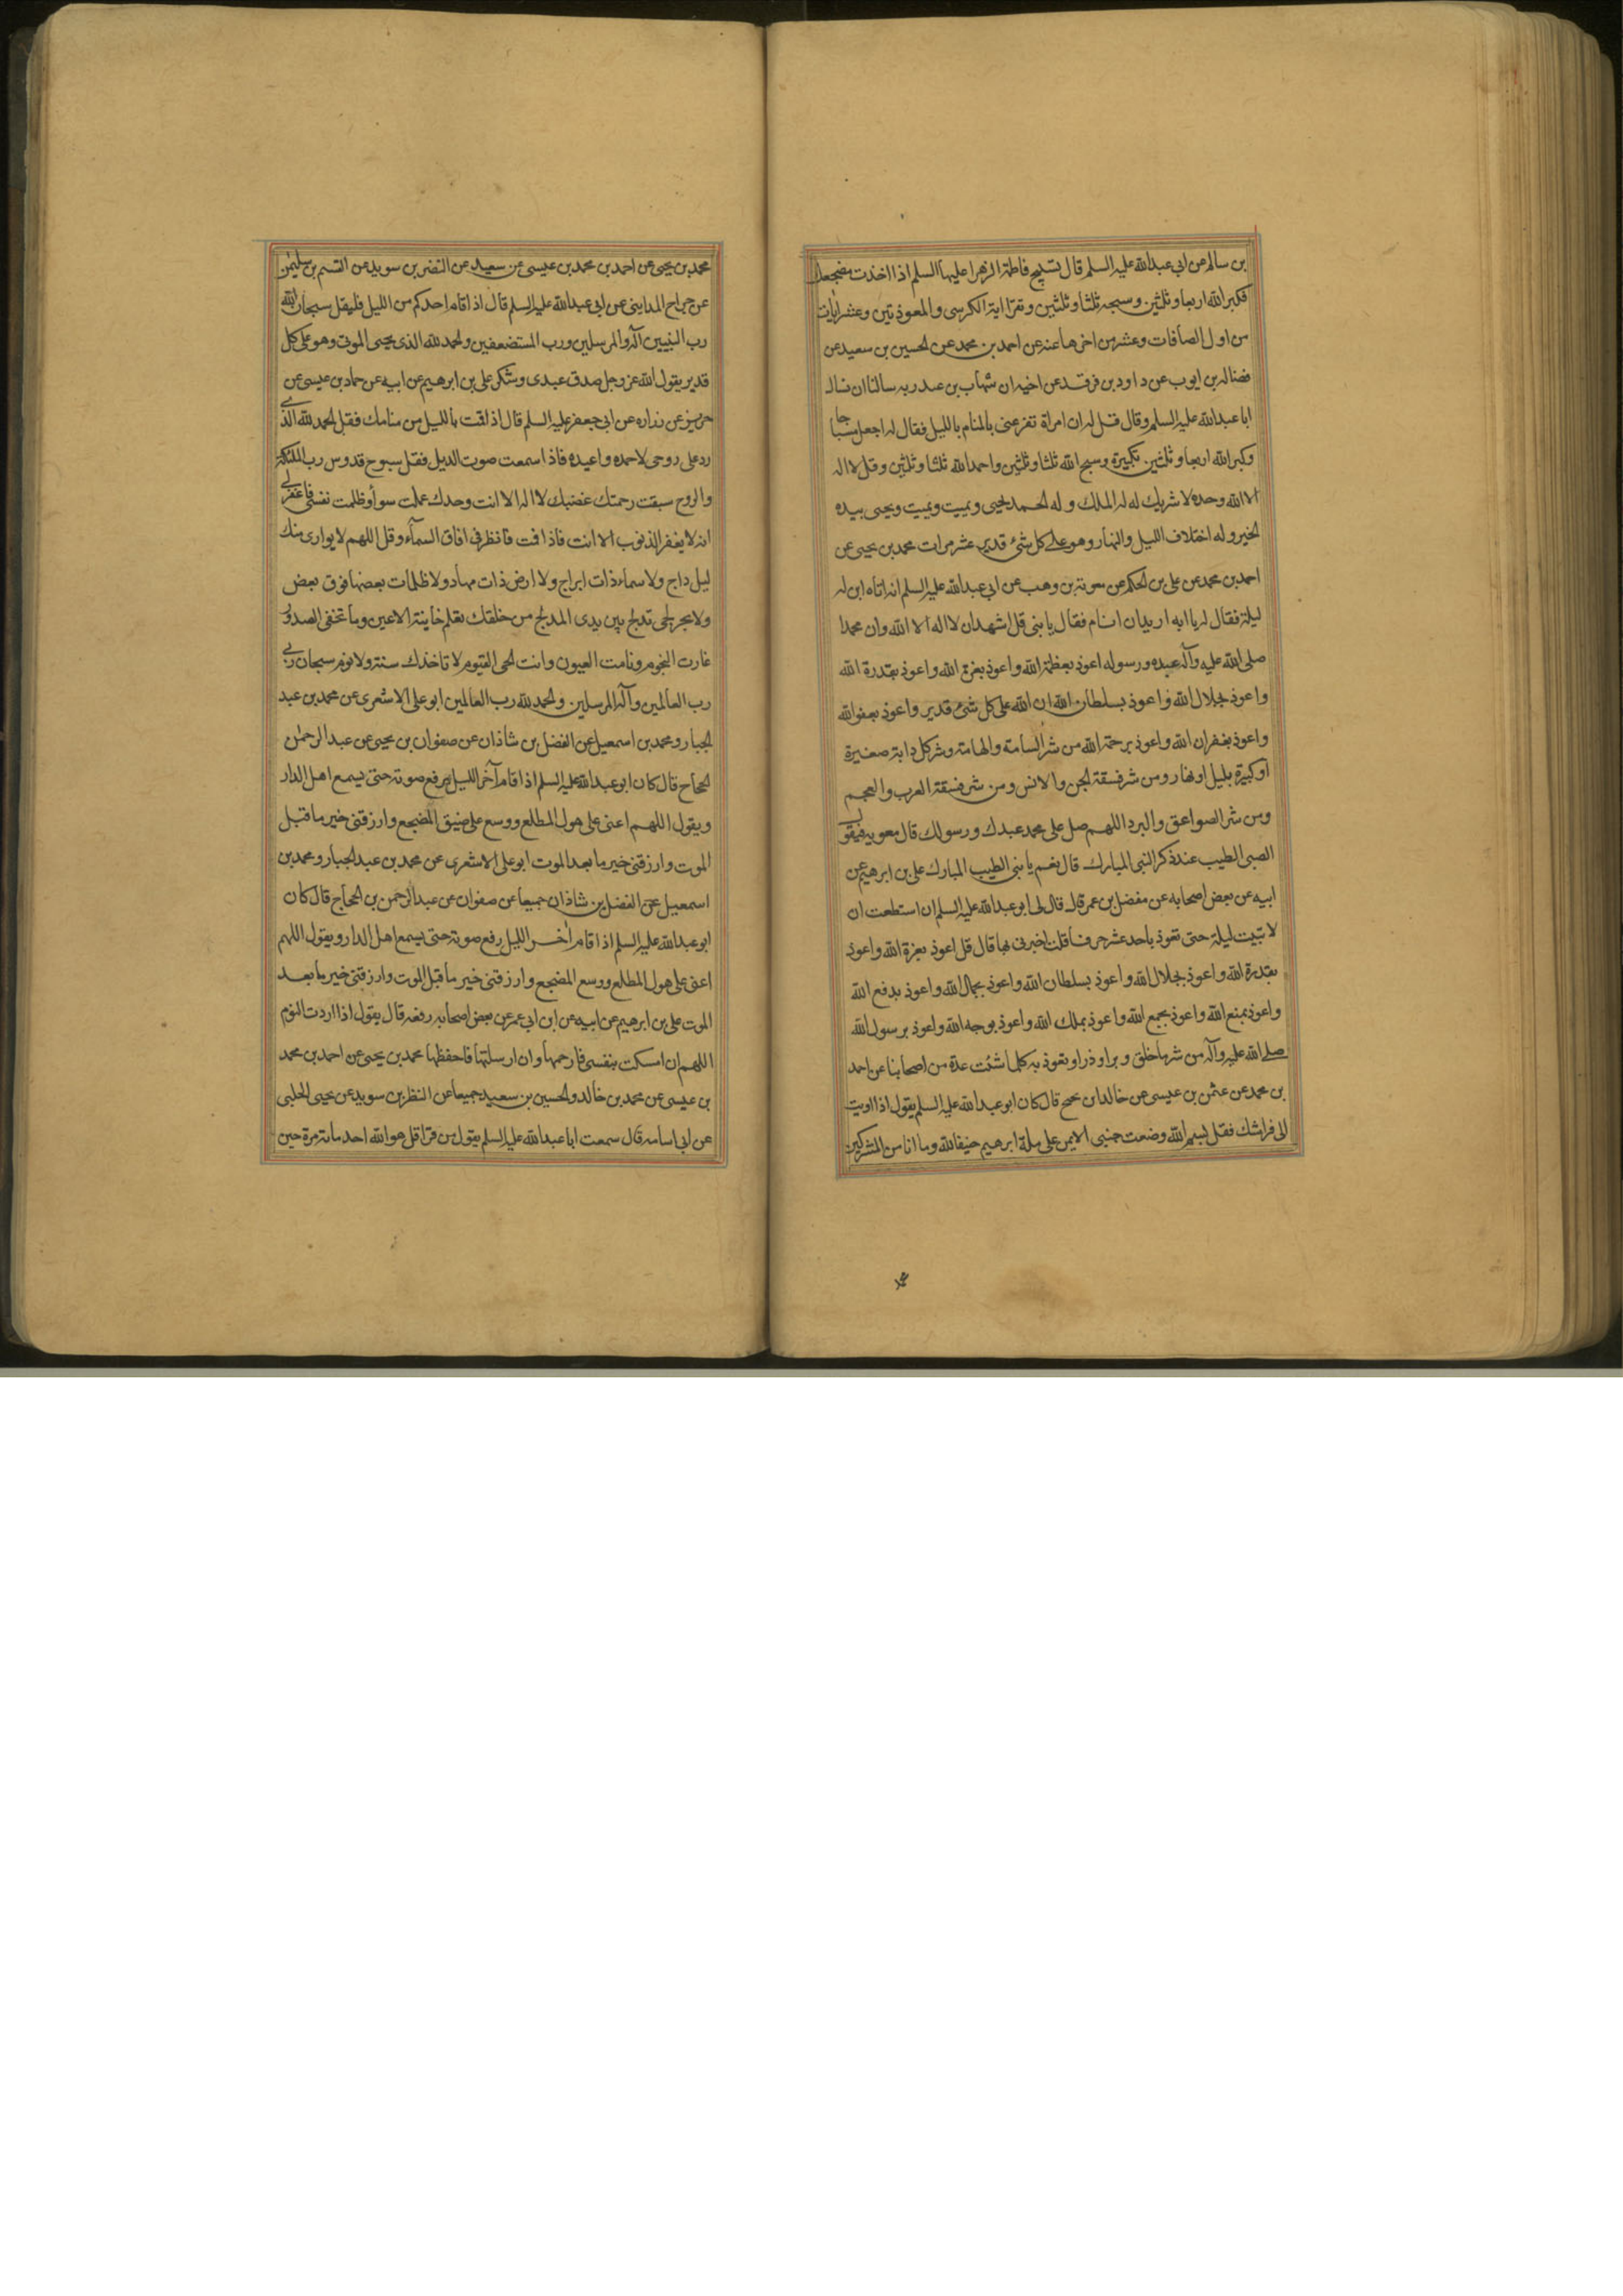 بن سالم عن ابي عبدالله عليه السلم قال تسبيح فاطمة الزهرا عليها السلم اذا اخذت مضجعك
فكبر الله اربعا وثلثين وسبحه ثلثا وثلثين وتقرا اية الكرسى والمعوذتين وعشر ايات
من اول الصافات وعشر من اخرها عنه عن احمد بن محمد عن الحسين بن سعيد عن
فضاله بن ايوب عن داود بن فرقد عن اخيه ان شهاب بن عبد ربه سالنا ان نسال
ابا عبدالله عليه السلم وقال قل له ان امراة تفزعنى بالمنام بالليل فقال له اجعل مسباحا
وكبر الله اربعا وثلثين تكبيرة وسبح الله ثلثا وثلثين واحمد الله ثلثا وثلثين وقل لا اله
الا الله وحده لا شريك له له الملك وله الحمد يحيى ويميت ويميت ويحيى بيده
الخير وله اختلاف الليل والنهار وهو على كل شئ قدير عشر مرات محمد بن يحيى عن
احمد بن محمد عن على بن الحكم عن معوية بن وهب عن ابي عبدالله عليه السلم انه اتاه ابن له
ليلة فقال له يا ابه اريد ان انام فقال يا بنى قل اشهد ان لا اله الا الله وان محمدا
صلى الله عليه وآله عبده ورسوله اعوذ بعظمة الله واعوذ بعزة الله واعوذ بقدرة الله
واعوذ بجلال الله واعوذ بسلطان الله ان الله على كل شئ قدير واعوذ بعفو الله
واعوذ بغفران الله واعوذ برحمة الله من شر السامة والهامة وشر كل دابة صغيرة
او كبيرة بليل او نهار ومن شر فسقة الجن والانس ومن شر فسقة العرب والعجم
ومن شر الصواعق والبرد اللهم صل على محمد عبدك ورسولك قال معويه فيقول
الصبى الطيب عند ذكر النبى المبارك قال نعم يا بنى الطيب المبارك على بن ابرهيم عن
ابيه عن بعض اصحابه عن مفضل بن عمر قال قال لى ابو عبدالله عليه السلم ان استطعت ان
لا تبيت ليلة حتى تعوذ باحد عشر حرفا قلت اخبرنى بها قال قل اعوذ بعزة الله واعوذ
بقدرة الله واعوذ بجلال الله واعوذ بسلطان الله واعوذ بجمال الله واعوذ بدفع الله
واعوذ بمنع الله واعوذ بجمع الله واعوذ بملك الله واعوذ بوجه الله واعوذ برسول الله
صلى الله عليه وآله من شر ما خلق وبرا وذرا وتعوذ به كلما شئت عدة من اصحابنا عن احمد
بن محمد عن عثمن بن عيسى عن خالد بن نجيح قال كان ابو عبدالله عليه السلم يقول اذا اويت
الى فراشك فقل بسم الله وضعت جنبى الايمن على ملة ابرهيم حنيفا لله وما انا من المشركين
محمد بن يحيى عن احمد بن محمد بن عيسى عن سعيد عن النضر بن سويد عن القسم بن سليمن
عن جراح المداينى عن ابى عبدالله عليه السلم قال اذا قام احدكم من الليل فليقل سبحان الله
رب النبيين وآله المرسلين ورب المستضعفين والحمد لله الذى يحيى الموتى وهو على كل
قدير يقول الله عز وجل صدق عبدى وشكر على بن ابرهيم عن ابيه عن حماد بن عيسى عن
حريز عن زراره عن ابى جعفر عليه السلم قال اذا قمت بالليل من منامك فقل الحمد لله الذى
رد على روحى لاحمده واعبده فاذا سمعت صوت الديك فقل سبوح قدوس رب الملئكة
والروح سبقت رحمتك غضبك لا اله الا انت وحدك عملت سوأ وظلمت نفسى فاغفر لى
انه لا يغفر الذنوب الا انت فاذا قمت فانظر فى افاق السمآء وقل اللهم لا يوارى منك
ليل داج ولا سماء ذات ابراج ولا ارض ذات مهاد ولا ظلمات بعضها فوق بعض
ولا بحر لجى تدلج بين يدى المدلج من خلقك تعلم خاينة الاعين وما تخفى الصدور
غارت النجوم ونامت العيون وانت الحى القيوم لا تاخذك سنة ولا نوم سبحان ربى
رب العالمين وآله المرسلين والحمد لله رب العالمين ابو على الاشعرى عن محمد بن عبد
الجبار ومحمد بن اسمعيل عن الفضل بن شاذان عن صفوان بن يحيى عن عبد الرحمن
الحجاج قال كان ابو عبدالله عليه السلم اذا قام آخر الليل يرفع صوته حتى يسمع اهل الدار
ويقول اللهم اعنى على هول المطلع ووسع على ضيق المضجع وارزقنى خير ما قبل
الموت وارزقنى خير ما بعد الموت ابو على الاشعرى عن محمد بن عبد الجبار ومحمد بن
اسمعيل عن الفضل بن شاذان جميعا عن صفوان عن عبد الرحمن بن الحجاج قال كان
ابو عبدالله عليه السلم اذا قام اخر الليل رفع صوته حتى يسمع اهل الدار ويقول اللهم
اعنى على هول المطلع ووسع المضجع وارزقنى خير ما قبل الموت وارزقنى خير ما بعد
الموت على بن ابرهيم عن ابيه عن ابن ابى عمير عن بعض اصحابه رفعه قال يقول اذا اردت النوم
اللهم ان امسكت بنفسى فارحمها وان ارسلتها فاحفظها محمد بن يحيى عن احمد بن محمد
بن عيسى عن محمد بن خالد والحسين بن سعيد جميعا عن النظر بن سويد عن يحيى الحلبى
عن ابى اسامه قال سمعت ابا عبدالله عليه السلم يقول من قرا قل هو الله احد مائة مرة حين